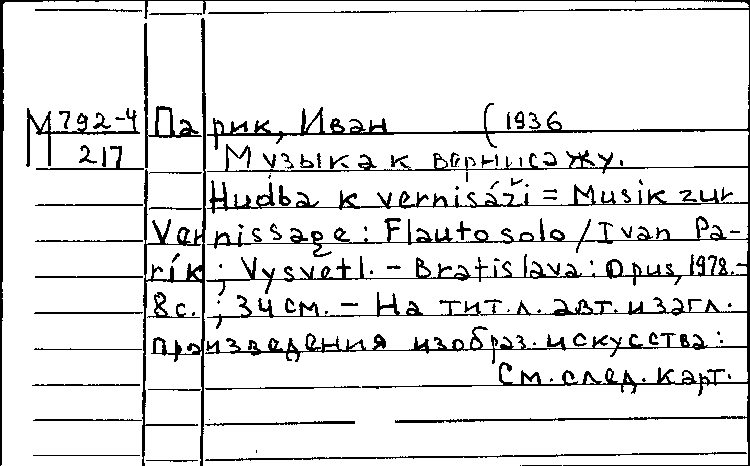 М 792-4 Парик, Иван (1936
217 Музыка к вернисажу.
Hudba k vernisáži = Musik zur
Vernissage: Flauto solo / Ivan Pa-
rík ; Vysvetl. - Bratislava: Opus, 1978.-
8с. ; 34 см. - На тит.л. авт. и загл.
произведения изобраз. искусства:
См. след. карт.